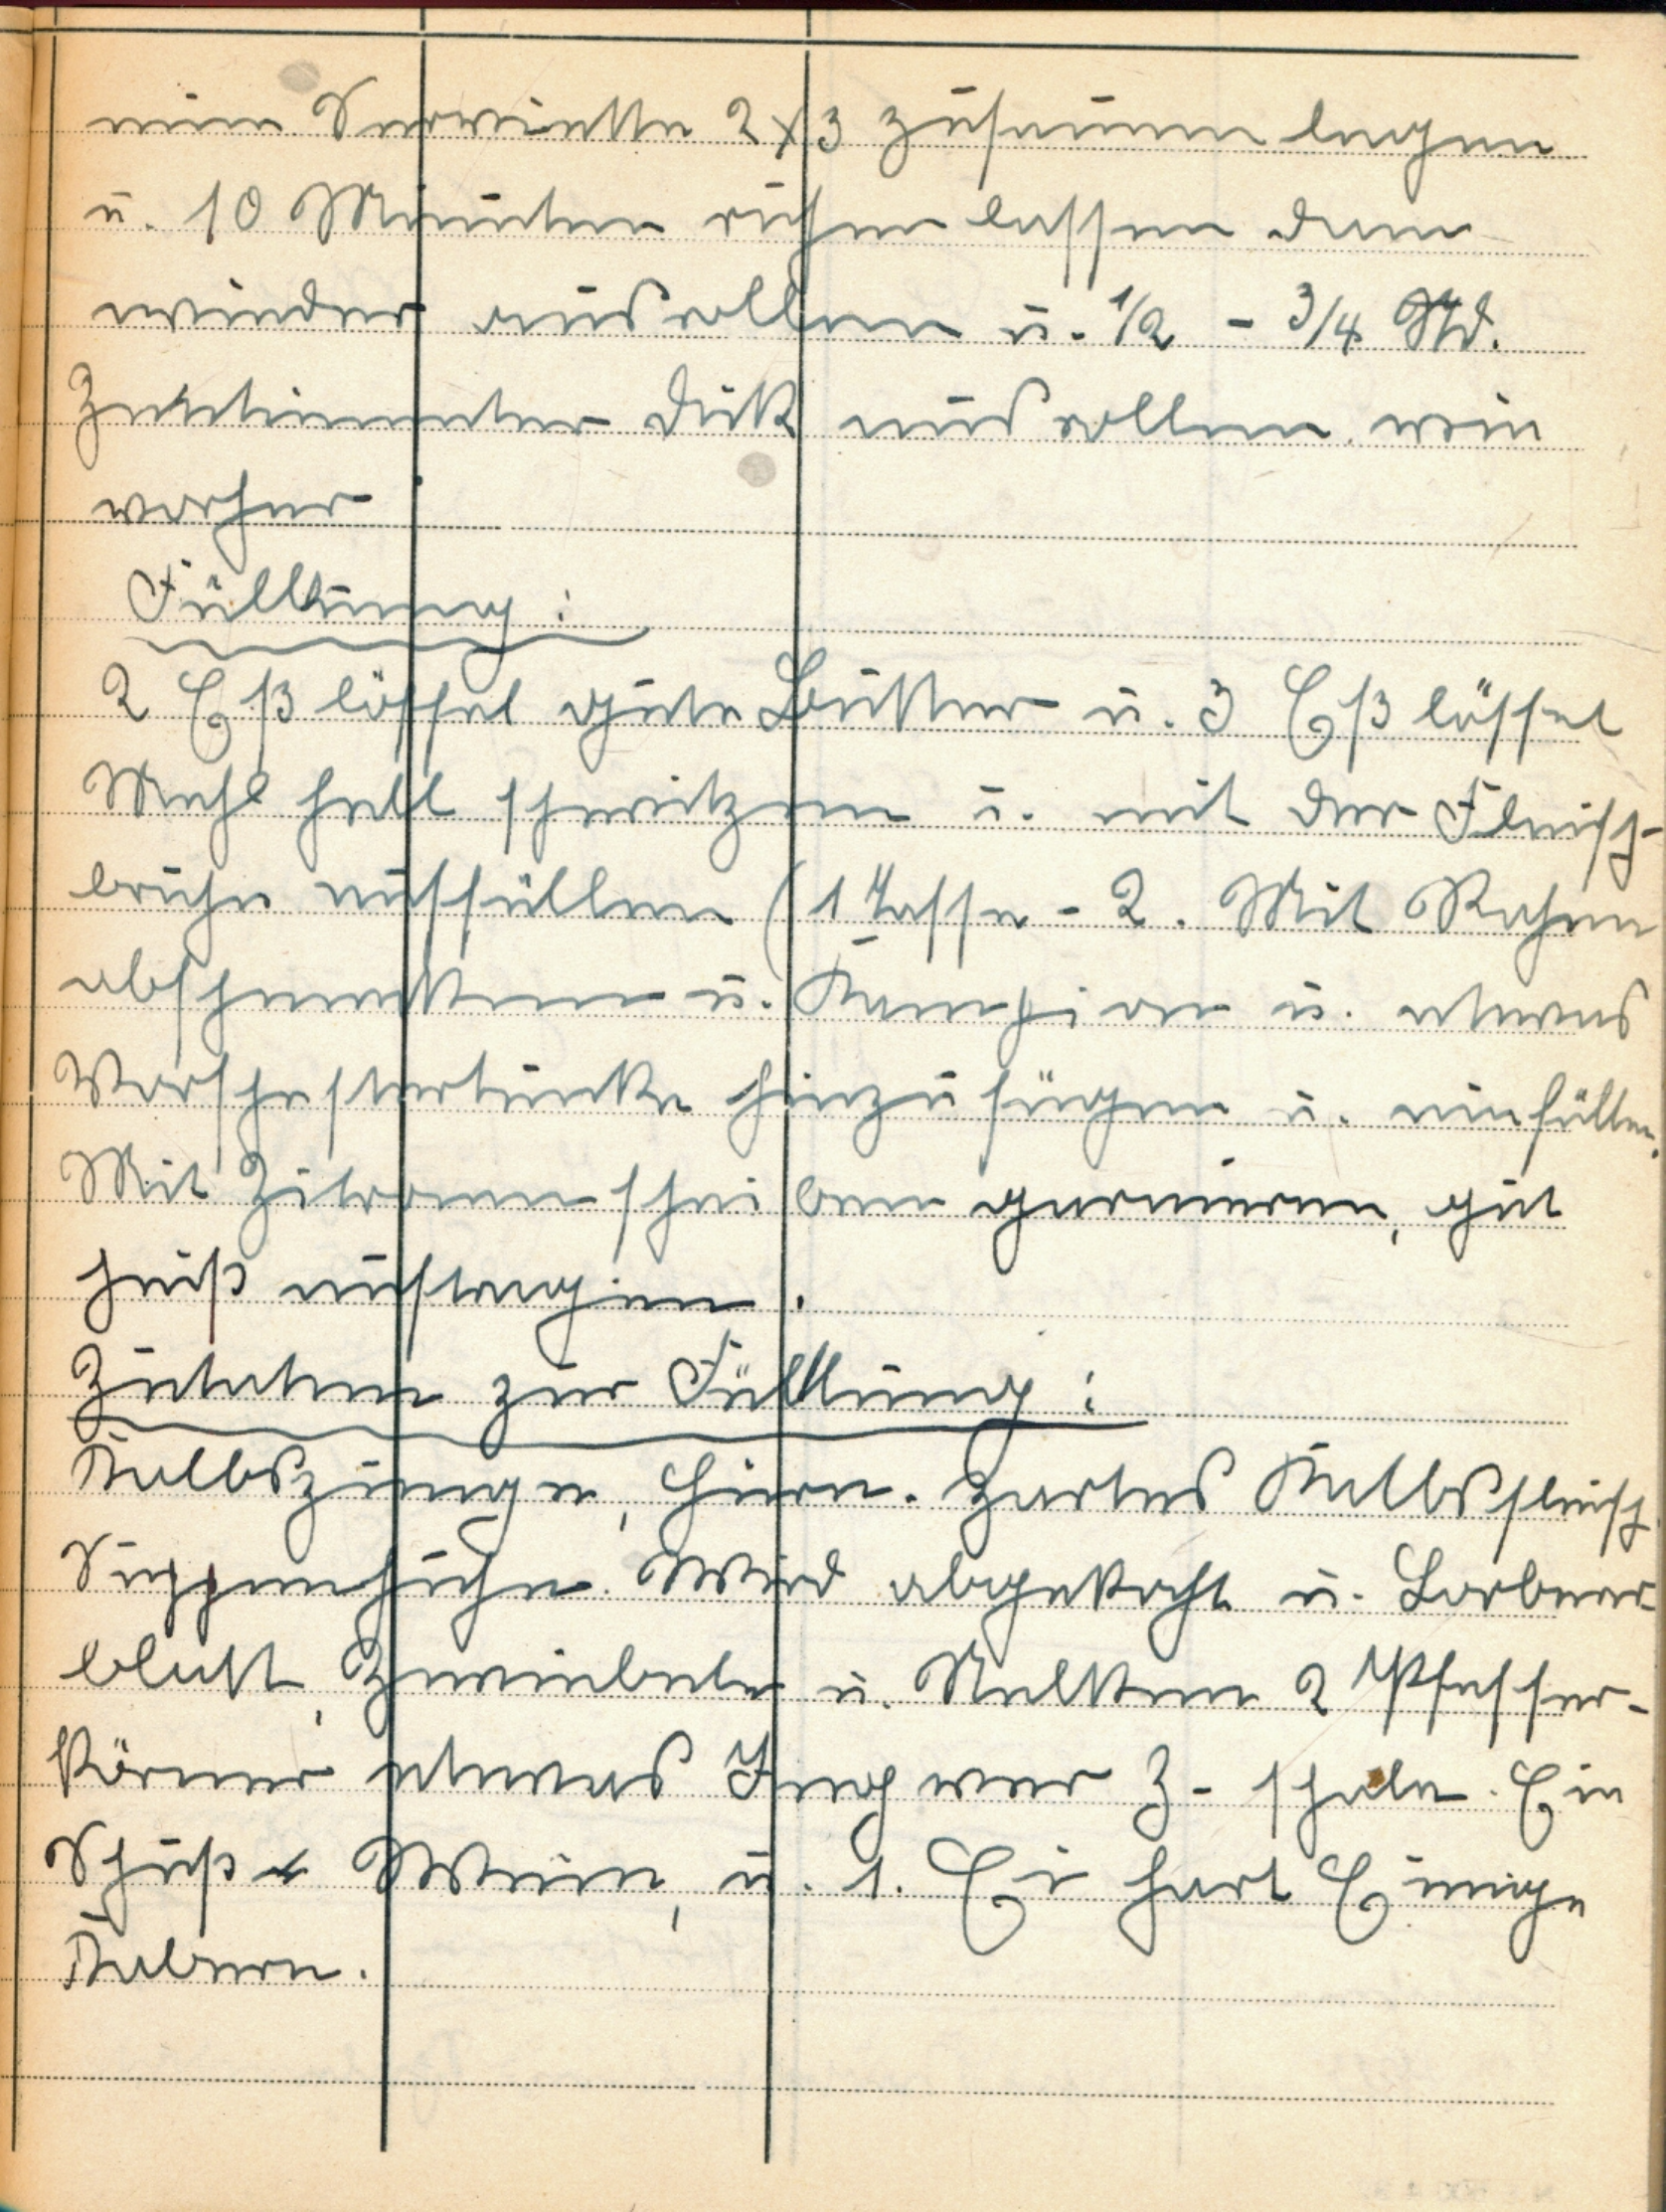 eine Serviette 2x3 zusammen legen
u. 10 Minuten ruhen lassen dann
wieder ausrollen u. 1/2 - 3/4 Std.
Zentimenter dick ausrollen wie
vorher
Füllung:
2 Eßlöffel gute Butter u. 3 Eßlöffel
Mehl hell schwitzen u. mit der Fleisch-
brühe auffüllen (1 Tasse - 2. Mit Rahm
abschmecken u. Kampion u. etwas
Worschestertunke hinzufügen u. einfüllen.
Mit Zitronenscheiben garnieren, gut
heiß auftragen.
Zutaten zur Füllung:
Kalbszunge, Hirn. zartes Kalbsfleisch
Suppenhuhn. Wird abgekocht u. Lorbeer
blatt, Zwiebeln u. Nelken 2 Pfeffer-
körner etwas Ingwer Z- schale. Ein
Schuß Wein, u. 1. Ei hart Einige
Kabern.